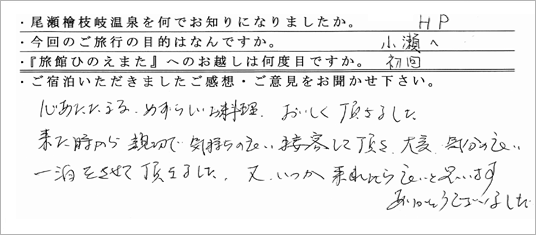 ・尾瀬檜枝岐温泉を何でお知りになりましたか。 HP
・今回のご旅行の目的はなんですか。 小瀬へ
・『旅館ひのえまた』へのお越しは何度目ですか。 初回
・ご宿泊いただきましたご感想・ご意見をお聞かせ下さい。
心あたたまる、めずらしいお料理、おいしく頂きました
来た時から親切で気持ちの良い接客して頂き、大変、気分の良い
一泊をさせて頂きました。又、いつか来れたら良いと思います
ありがとうございました